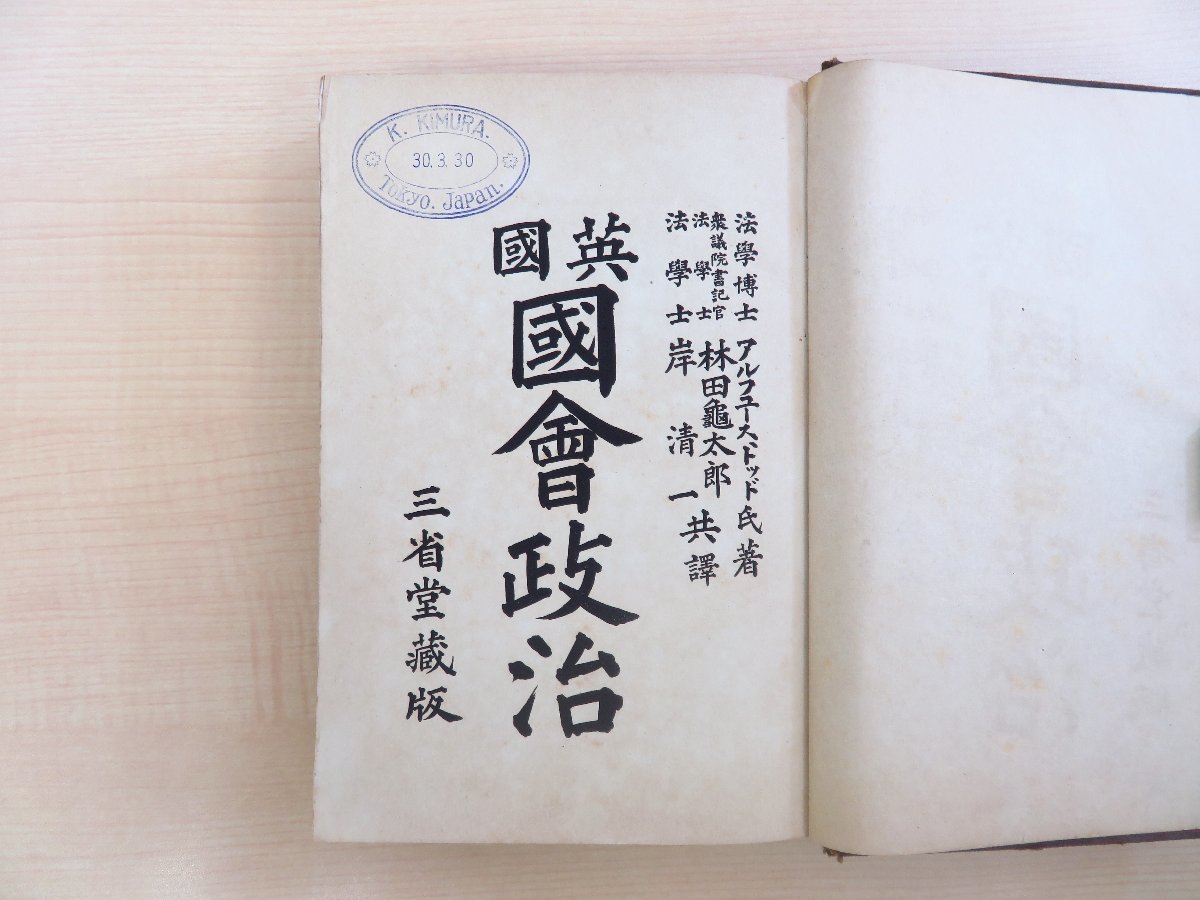 K. KIMURA.
30.3.30
Tokyo. Japan.
法學博士 アルフユース、トッド氏著
衆議院書記官
法學士 林田龜太郎
法學士 岸清一 共譯
英國
國會政治
三省堂藏版